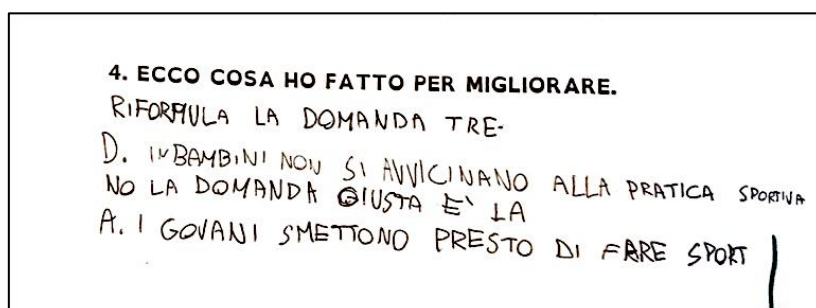 4. ECCO COSA HO FATTO PER MIGLIORARE.
RIFORMULA LA DOMANDA TRE-
D. IN BAMBINI NON SI AVVICINANO ALLA PRATICA SPORTIVA
NO LA DOMANDA GIUSTA E' LA
A. I GOVANI SMETTONO PRESTO DI FARE SPORT